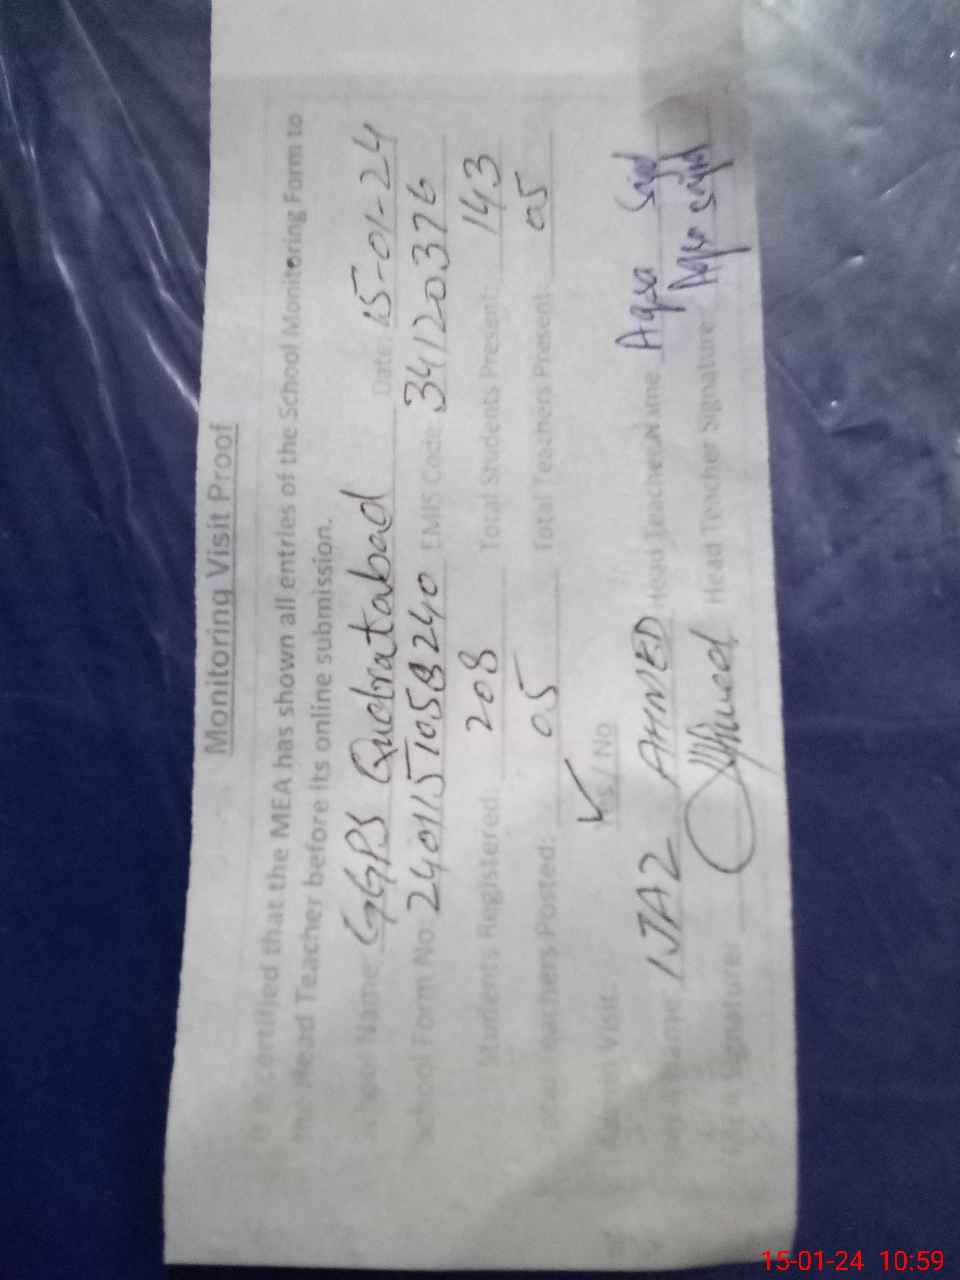 Monitoring Visit Proof
It is certified that the MEA has shown all entries of the School Monitoring Form to
the Head Teacher before its online submission.
School Name: GGPS Qudratabad Date: 15-01-24
School Form No: 2401151058240 EMIS Code: 34120376
Students Registered: 208 Total Students Present: 143
Total Teachers Posted: 05 Total Teachers Present: 05
Visit: Yes / No
Name: IJAZ AHMED Head Teacher Name: Aqsa Sajid
MEA Signature: Head Teacher Signature: Aqsa Sajid
15-01-24 10:59